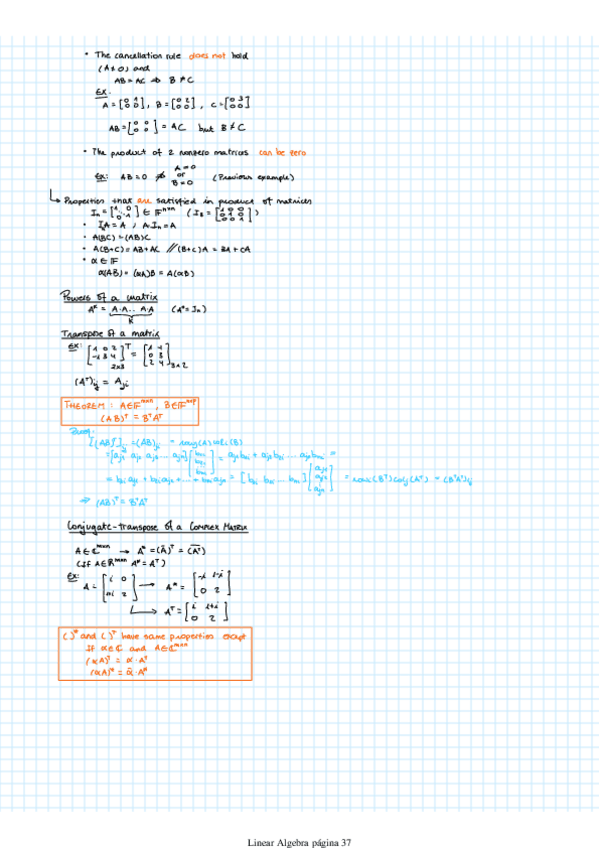 • The cancellation rule does not hold
(A≠0) and
AB = AC ⇏ B ≠ C
Ex.
A = [0 1; 0 0], B = [0 2; 0 0], C = [0 3; 0 0]
AB = [0 0; 0 0] = AC but B ≠ C
• The product of 2 nonzero matrices can be zero
Ex: AB = 0 ⇏ A = 0 or B = 0 (Previous example)
↳ Properties that are satisfied in product of matrices
In = [1 0; ⋱; 0 1] ∈ F^n×n (I3 = [1 0 0; 0 1 0; 0 0 1])
• InA = A , A·In = A
• A(BC) = (AB)C
• A(B+C) = AB + AC // (B+C)A = BA + CA
• α ∈ F
α(AB) = (αA)B = A(αB)
Powers of a matrix
A^k = A·A... A·A (A^0 = In)
k
Transpose of a matrix
Ex: [1 0 2; -1 3 4]^T 2x3 = [1 -1; 0 3; 2 4] 3x2
(A^T)ij = Aji
THEOREM: A∈F^m×n, B∈F^n×p
(AB)^T = B^T A^T
Proof:
[(AB)^T]ij = (AB)ji = rowj(A) coli(B)
= [aj1 aj2 aj3 ... ajn] [b1i; b2i; bni] = aj1b1i + aj2b2i ... ajnbni =
= b1i aj1 + b2i aj2 + ... + bni ajn = [b1i b2i ... bni] [aj1; aj2; ajn] = rowi(B^T) colj(A^T) = (B^T A^T)ij
⇒ (AB)^T = B^T A^T
Conjugate-transpose of a Complex Matrix
A∈C^m×n → A* = (Ā)^T = (A^T)‾
(If A∈R^m×n A* = A^T)
Ex:
→ A* = [-i 1-i; 0 2]
↳ A^T = [i 1+i; 0 2]
( )* and ( )^T have same properties except
If α∈C and A∈C^m×n
(αA)^T = α·A^T
(αA)* = ᾱ·A*
Linear Algebra página 37